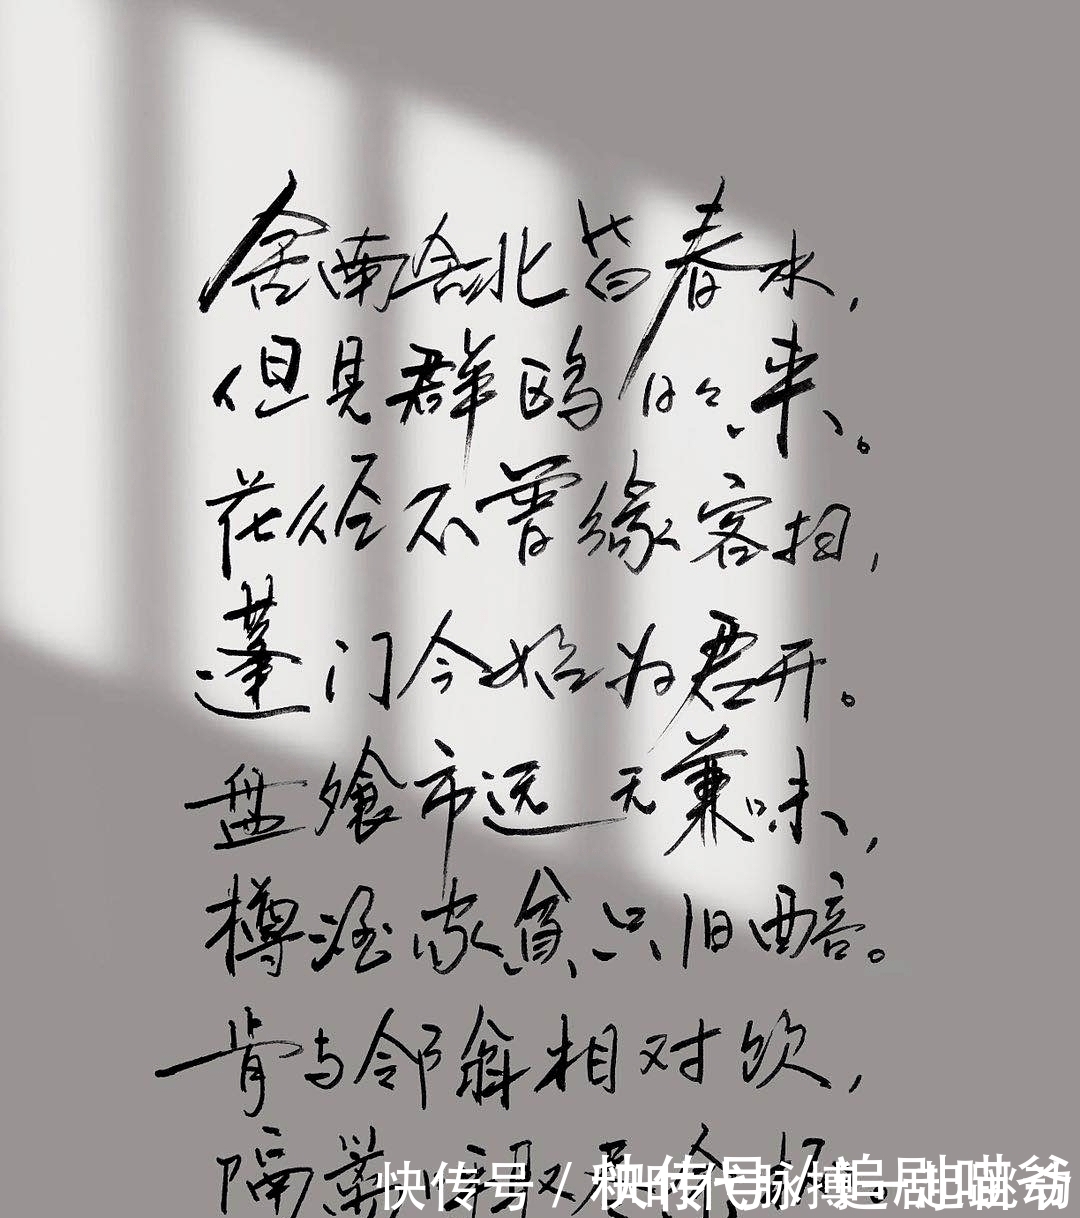 舍南舍北皆春水，
但见群鸥日々来。
花径不曾缘客扫，
蓬门今始为君开。
盘飧市远无兼味，
樽酒家贫只旧醅。
肯与邻翁相对饮，
隔篱
快传号 /
快传号 / 追剧喵爷